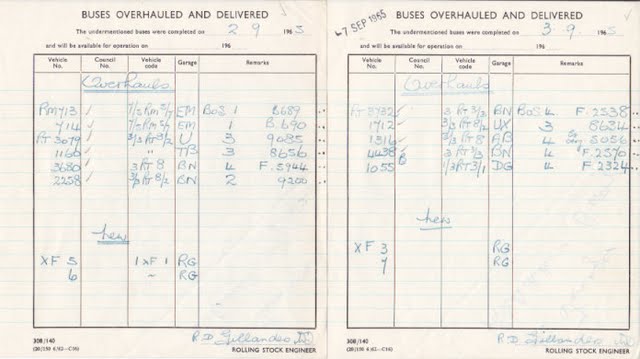 BUSES OVERHAULED AND DELIVERED
The undermentioned buses were completed on 2 9 1965
and will be available for operation on 196
Vehicle No. Council No. Vehicle code Garage Remarks
Overhauls
RM713 ✓ 7/2 RM 5/7 EM BoS 1 B689
714 ✓ 7/2 RM 5/7 EM 1 B.690
RT 3079 ✓ 3/3 RT 3/2 U 3 9085
1160 ✓ " TB 3 8656
3680 ✓ 3 RT 8 BN 4 F.3944
2258 ✓ 3/3 RT 8/2 BN 2 9200
New
XF 5 1 XF 1 RG
6 " RG
P.D. Gillandes
308/140
ROLLING STOCK ENGINEER
7 SEP 1965
BUSES OVERHAULED AND DELIVERED
The undermentioned buses were completed on 3.9. 1965
and will be available for operation on 196
Vehicle No. Council No. Vehicle code Garage Remarks
Overhauls
RT 3732 ✓ 3 RT 3/2 BN BoS 4 F.2538
1712 ✓ 3 RT 8/2 UX 3 8634
1316 ✓ 3/3 RT 8 AB 4 8056
4438 3 RT 3/2 BN 4 F.2570
1055 1/3 RT 3/1 DG 4 F.2324
New
XF 3 RG
7 RG
P.D. Gillandes
308/140
ROLLING STOCK ENGINEER